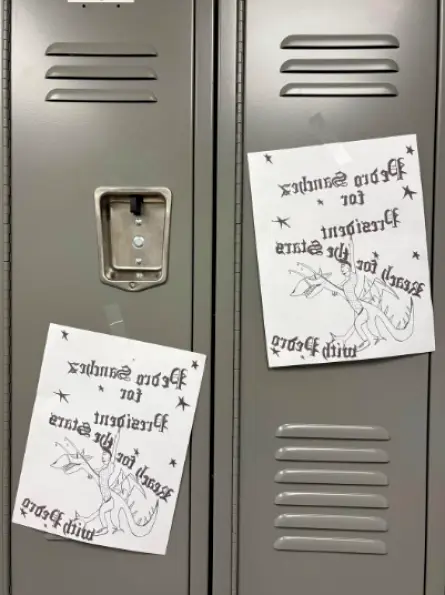 Pedro Sanchez
for
President
Reach for the Stars
with Pedro
Pedro Sanchez
for
President
Reach for the Stars
with Pedro